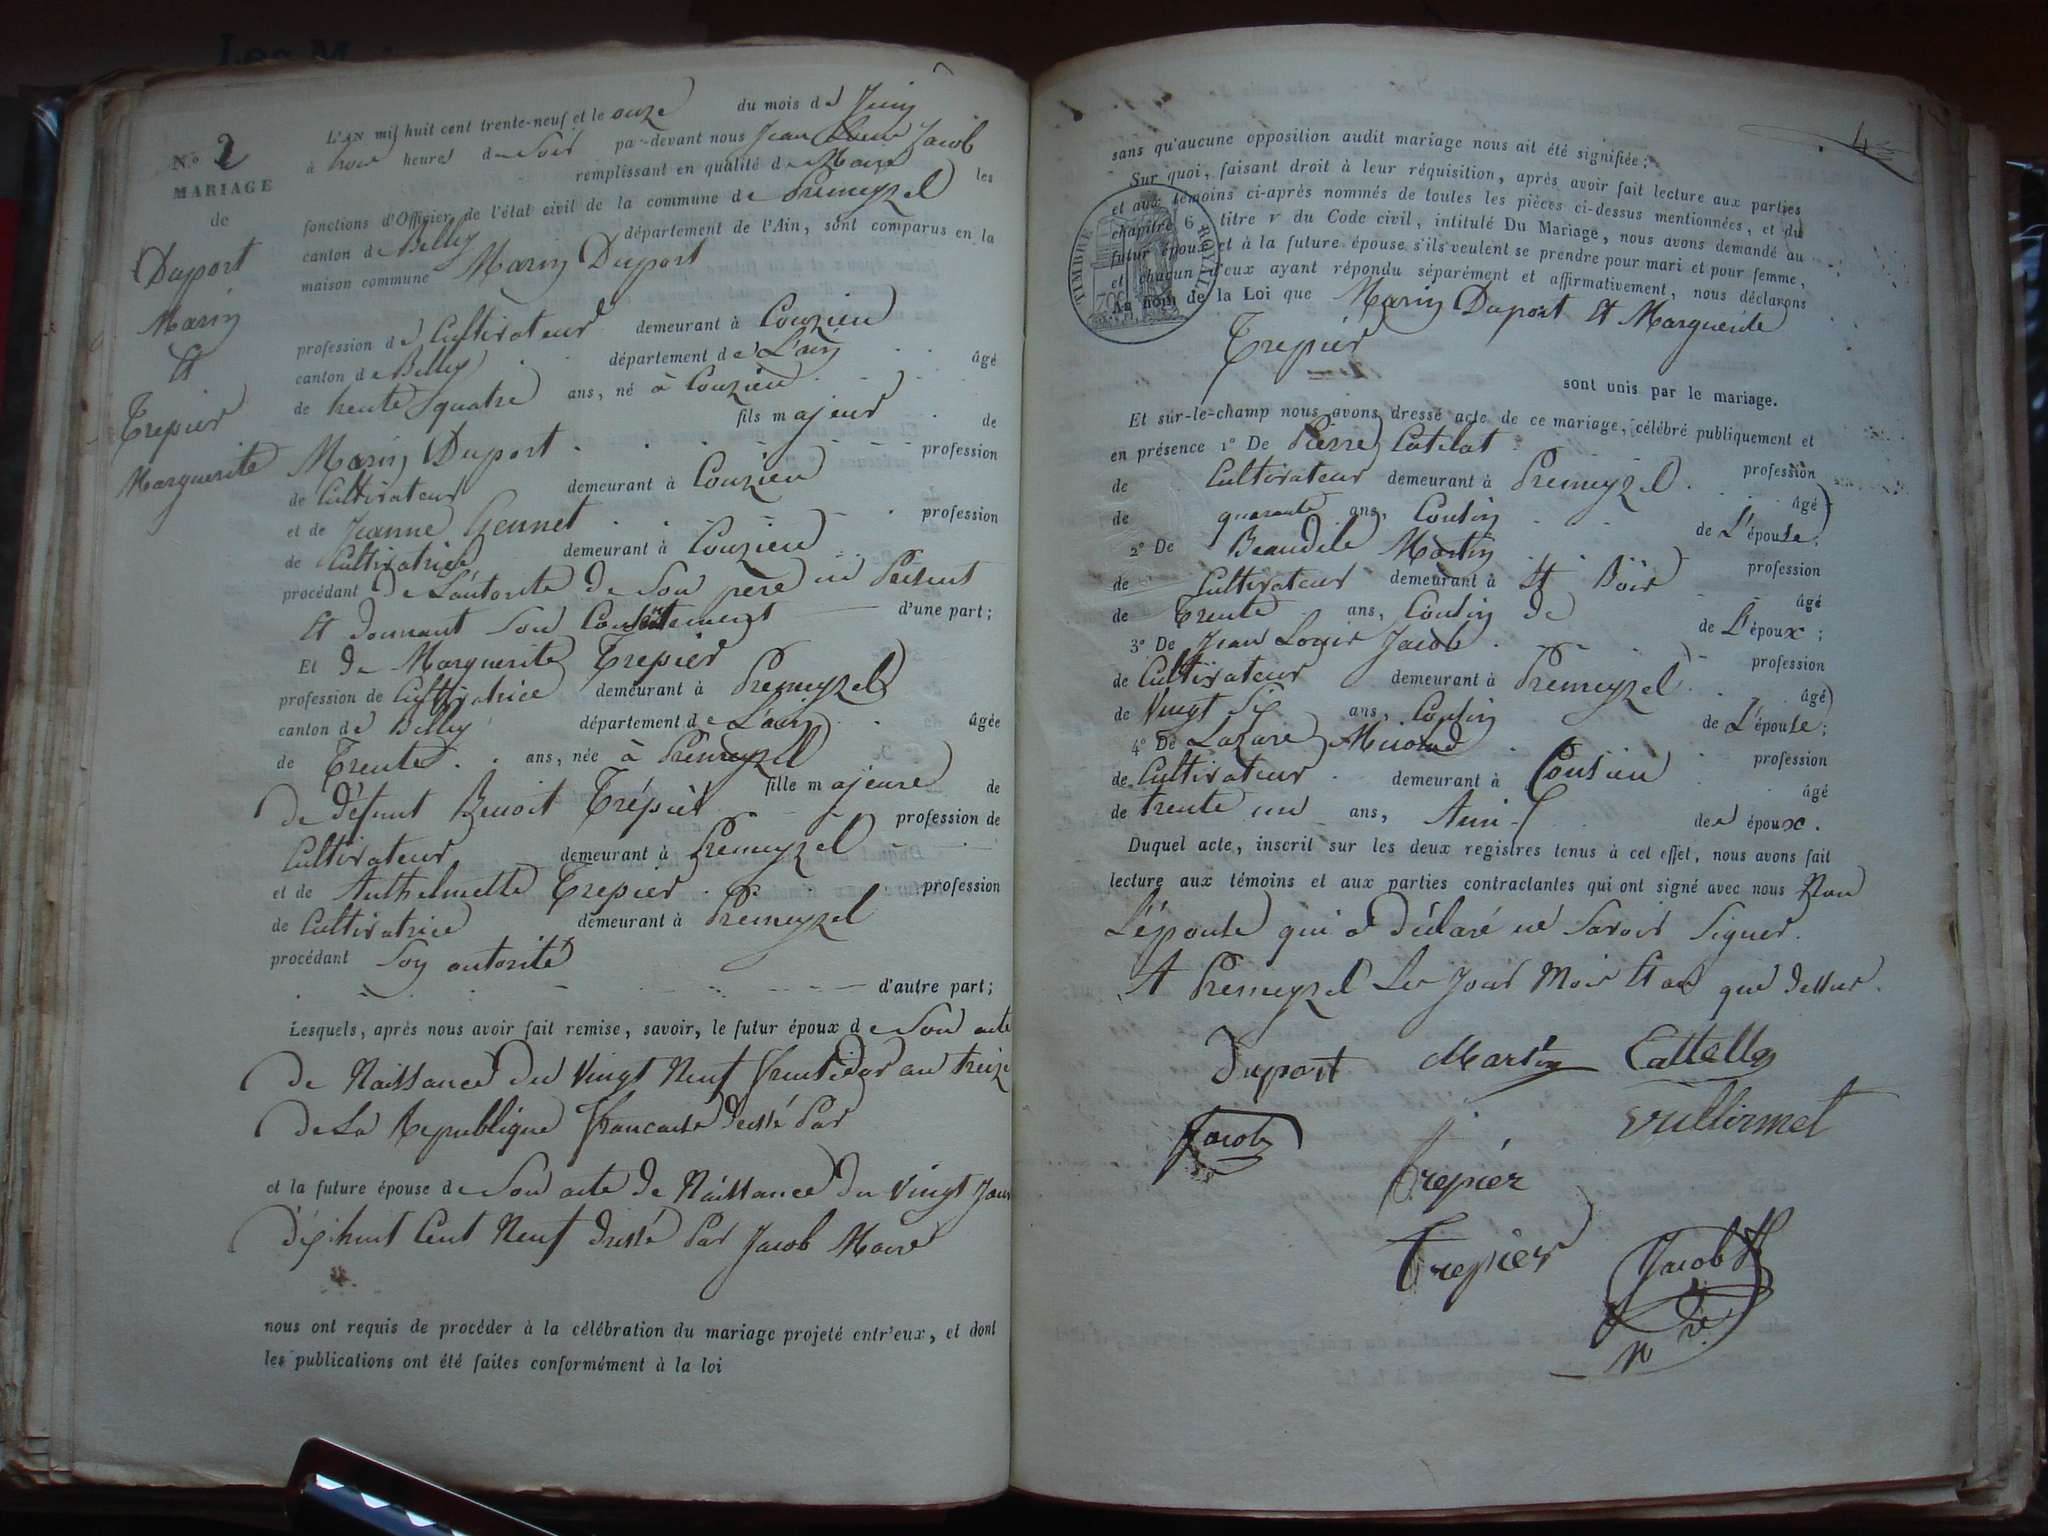 N.º 2
MARIAGE
de
Duport
Marin
Et
Trepier
Marguerite
L'AN mil huit cent trente-neuf et le onze du mois de Juin
à heures du Soir par-devant nous Jean Jacob
remplissant en qualité de Maire les
fonctions d'Officier de l'état civil de la commune de Premeyzel
canton de Belley département de l'Ain, sont comparus en la
maison commune Marin Duport
profession de Cultivateur demeurant à Couzieu
canton de Belley département de L'ain âgé
de trente quatre ans, né à Couzieu
fils majeur de
Marin Duport profession
de Cultivateur demeurant à Couzieu
et de Jeanne profession
de Cultivatrice demeurant à Couzieu
procédant de L'autorité de Son père ici Present
Et donnant Son Consentement d'une part;
Et de Marguerite Trepier
profession de Cultivatrice demeurant à Premeyzel
canton de Belley département de L'ain âgée
de Trente ans, née à Premeyzel
fille majeure de
de défunt Benoit Trépier profession de
Cultivateur demeurant à Premeyzel
et de Anthelmette Trepier profession
de Cultivatrice demeurant à Premeyzel
procédant Son autorité
d'autre part;
Lesquels, après nous avoir fait remise, savoir, le futur époux de Son acte
de Naissance du Vingt Neuf fructidor an treize
de La Republique francaise dressé Par
et la future épouse de Son acte de Naissance du Vingt
dix huit Cent Neuf dressé Par Jacob Maire
nous ont requis de procéder à la célébration du mariage projeté entr'eux, et dont
les publications ont été faites conformément à la loi
4
sans qu'aucune opposition audit mariage nous ait été signifiée;
Sur quoi, faisant droit à leur réquisition, après avoir fait lecture aux parties
et aux témoins ci-après nommés de toutes les pièces ci-dessus mentionnées, et du
chapitre 6, titre V du Code civil, intitulé Du Mariage, nous avons demandé au
futur époux et à la future épouse s'ils veulent se prendre pour mari et pour femme,
et chacun d'eux ayant répondu séparément et affirmativement, nous déclarons
Au nom de la Loi que Marin Duport Et Marguerite
Trepier
TIMBRE ROYAL
sont unis par le mariage.
Et sur-le-champ nous avons dressé acte de ce mariage, célébré publiquement et
en présence 1º De Pierre Catelat profession
de Cultivateur demeurant à Premeyzel âgé
de quarante ans, Cousin de L'épouse;
2º De Beaudele Martin profession
de Cultivateur demeurant à St Bois âgé
de Trente ans, Cousin de de L'époux;
3º De Jean Louis Jacob profession
de Cultivateur demeurant à Premeyzel âgé
de Vingt Six ans, Cousin de L'épouse;
4º De Lazare profession
de Cultivateur demeurant à Cousieu âgé
de trente un ans, Ami des époux.
Duquel acte, inscrit sur les deux registres tenus à cet effet, nous avons fait
lecture aux témoins et aux parties contractantes qui ont signé avec nous Non
L'épouse qui a déclaré ne Savoir Signer.
A Premeyzel Les Jour Mois Et an que dessus.
Duport Martin Cattella
Jacob Vullermet
Trepier
Trepier Jacob